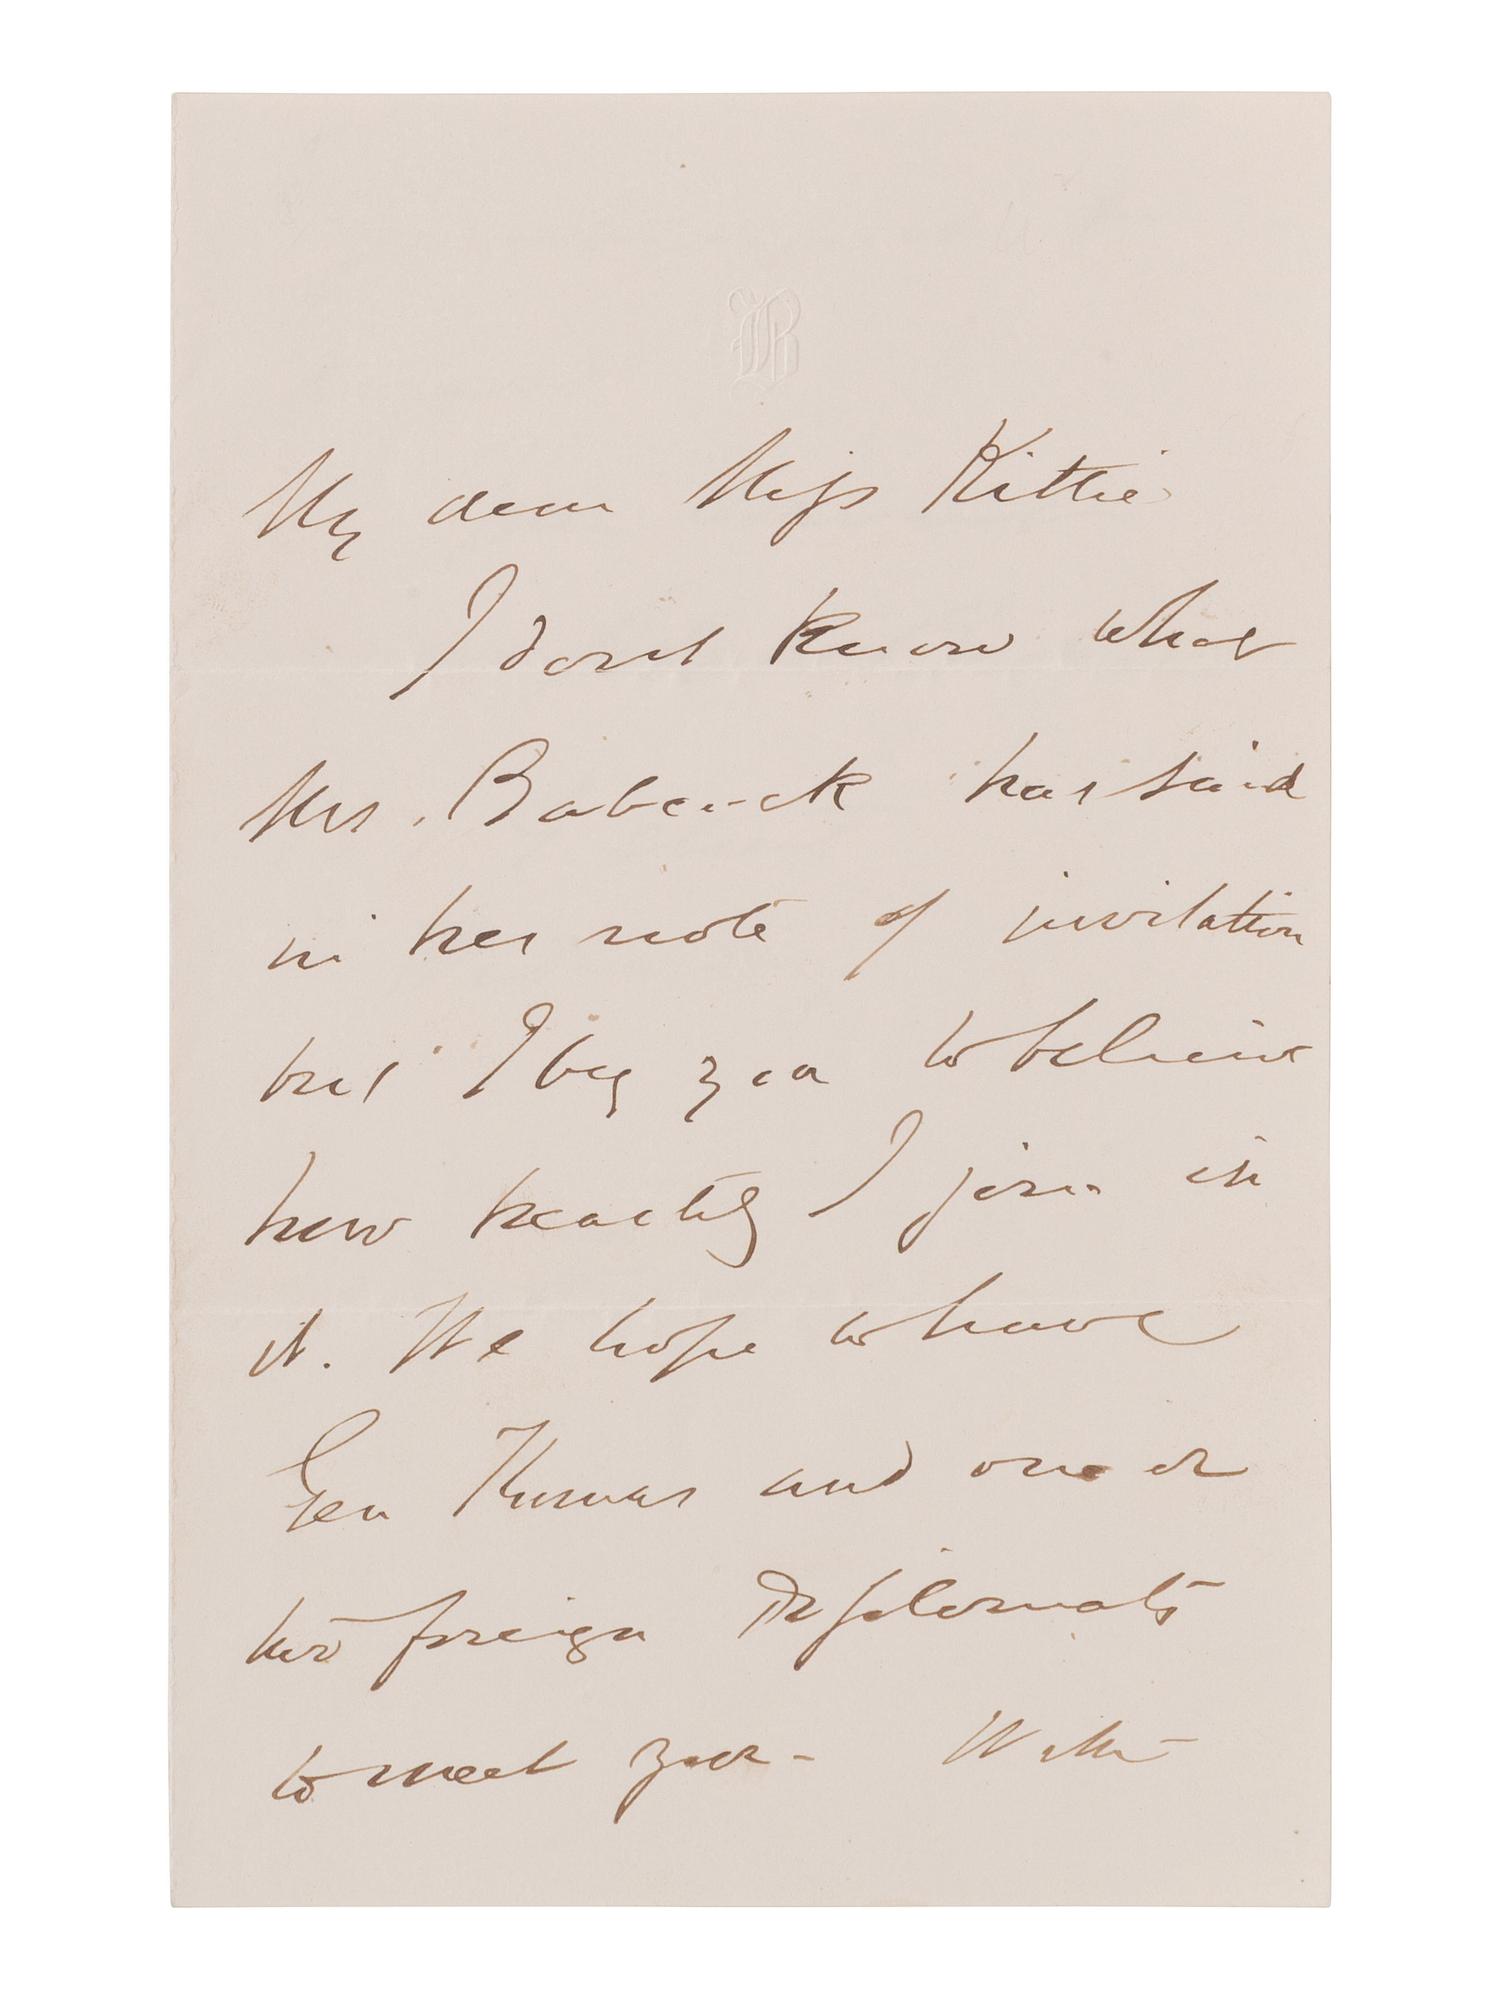 B
My dear Miss Kittie
I dont know what
Mrs. Babcock has said
in her note of invitation
but I beg you to believe
how heartily I join in
it. We hope to have
Gen and one or
two foreign Diplomats
to meet you - With